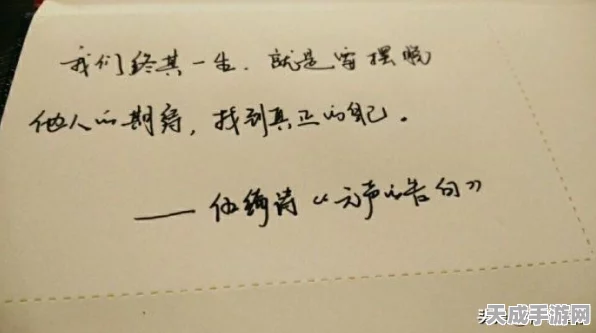 我们终其一生，就是要摆脱
他人的期待，找到真正的自己。
——伍绮诗《无声告白》
天成手游网